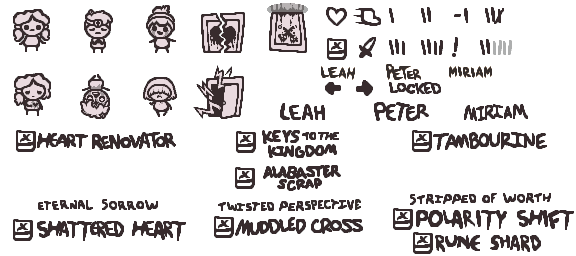 LEAH PETER MIRIAM
LOCKED
LEAH PETER MIRIAM
HEART RENOVATOR
KEYS TO THE
KINGDOM
TAMBOURINE
ALABASTER
SCRAP
ETERNAL SORROW
SHATTERED HEART
TWISTED PERSPECTIVE
MUDDLED CROSS
STRIPPED OF WORTH
POLARITY SHIFT
RUNE SHARD